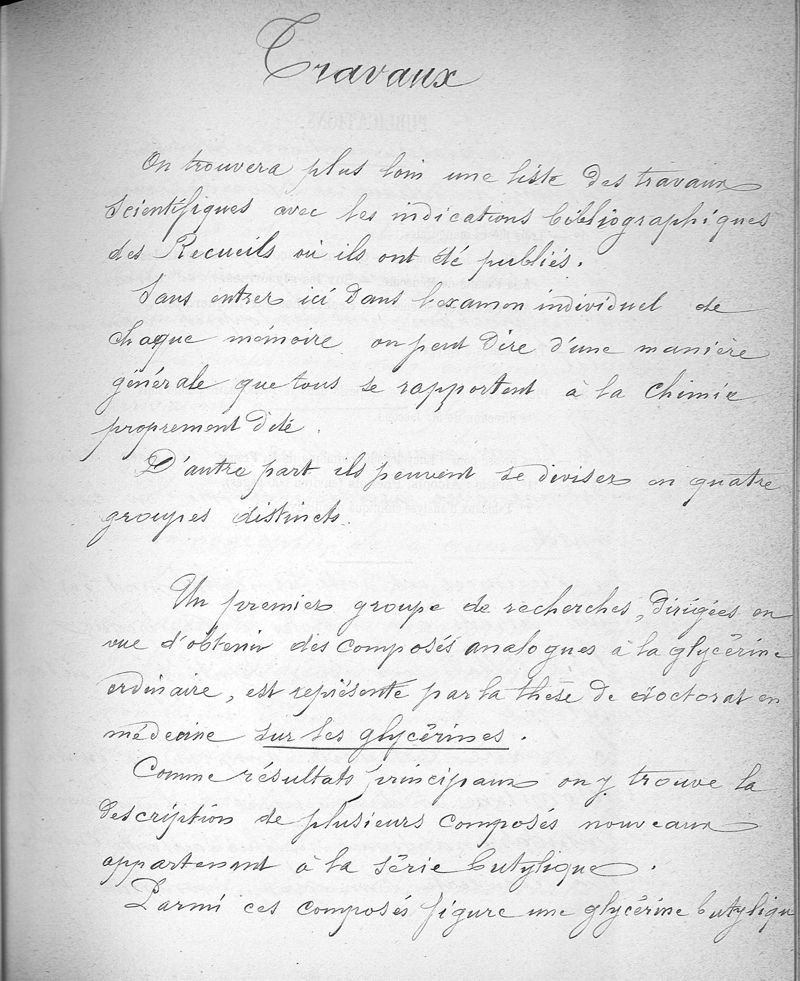 Travaux
On trouvera plus loin une liste des travaux
scientifiques avec les indications bibliographiques
des Recueils où ils ont été publiés.
Sans entrer ici dans l'examen individuel de
chaque mémoire on peut dire d'une manière
générale que tous se rapportent à la chimie
proprement dite.
D'autre part ils peuvent se diviser en quatre
groupes distincts.
Un premier groupe de recherches, dirigées en
vue d'obtenir des composés analogues à la glycérine
ordinaire, est représenté par la thèse de doctorat en
médecine sur les glycérines.
Comme résultats principaux on y trouve la
description de plusieurs composés nouveaux
appartenant à la série butylique.
Parmi ces composés figure une glycérine butyliqu